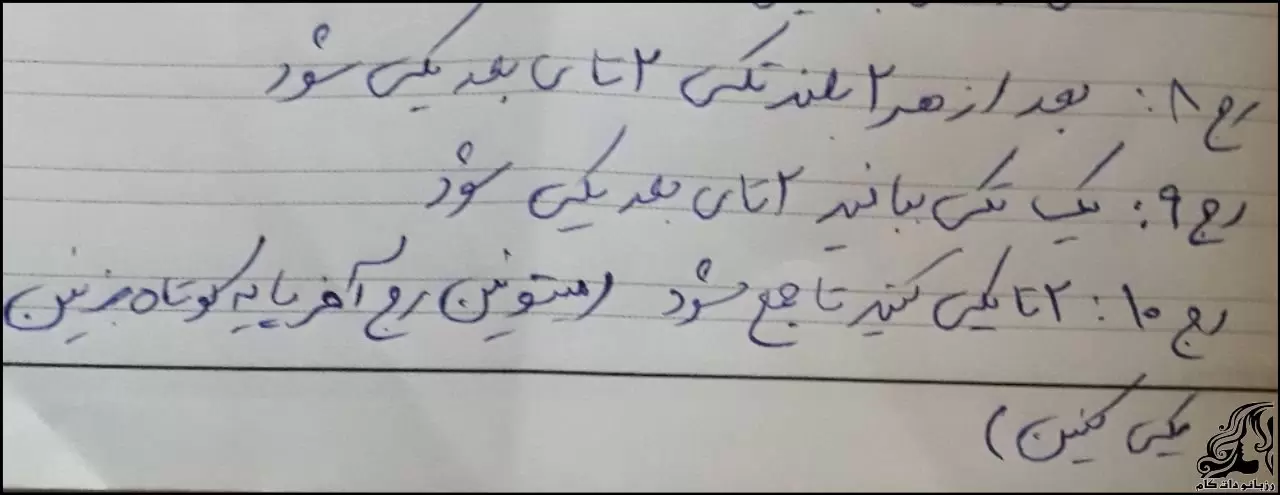 رج ۸: بعد از هر ۲ بلند تکی ۲ تای بعد یکی شود
رج ۹: یک تکی ببافید ۲ تای بعد یکی شود
رج ۱۰: ۲ تا یکی کنید تا جمع شود (میتونین رج آخر پایه کوتاه بزنین
یکی کنین)
رزبانو دات کام